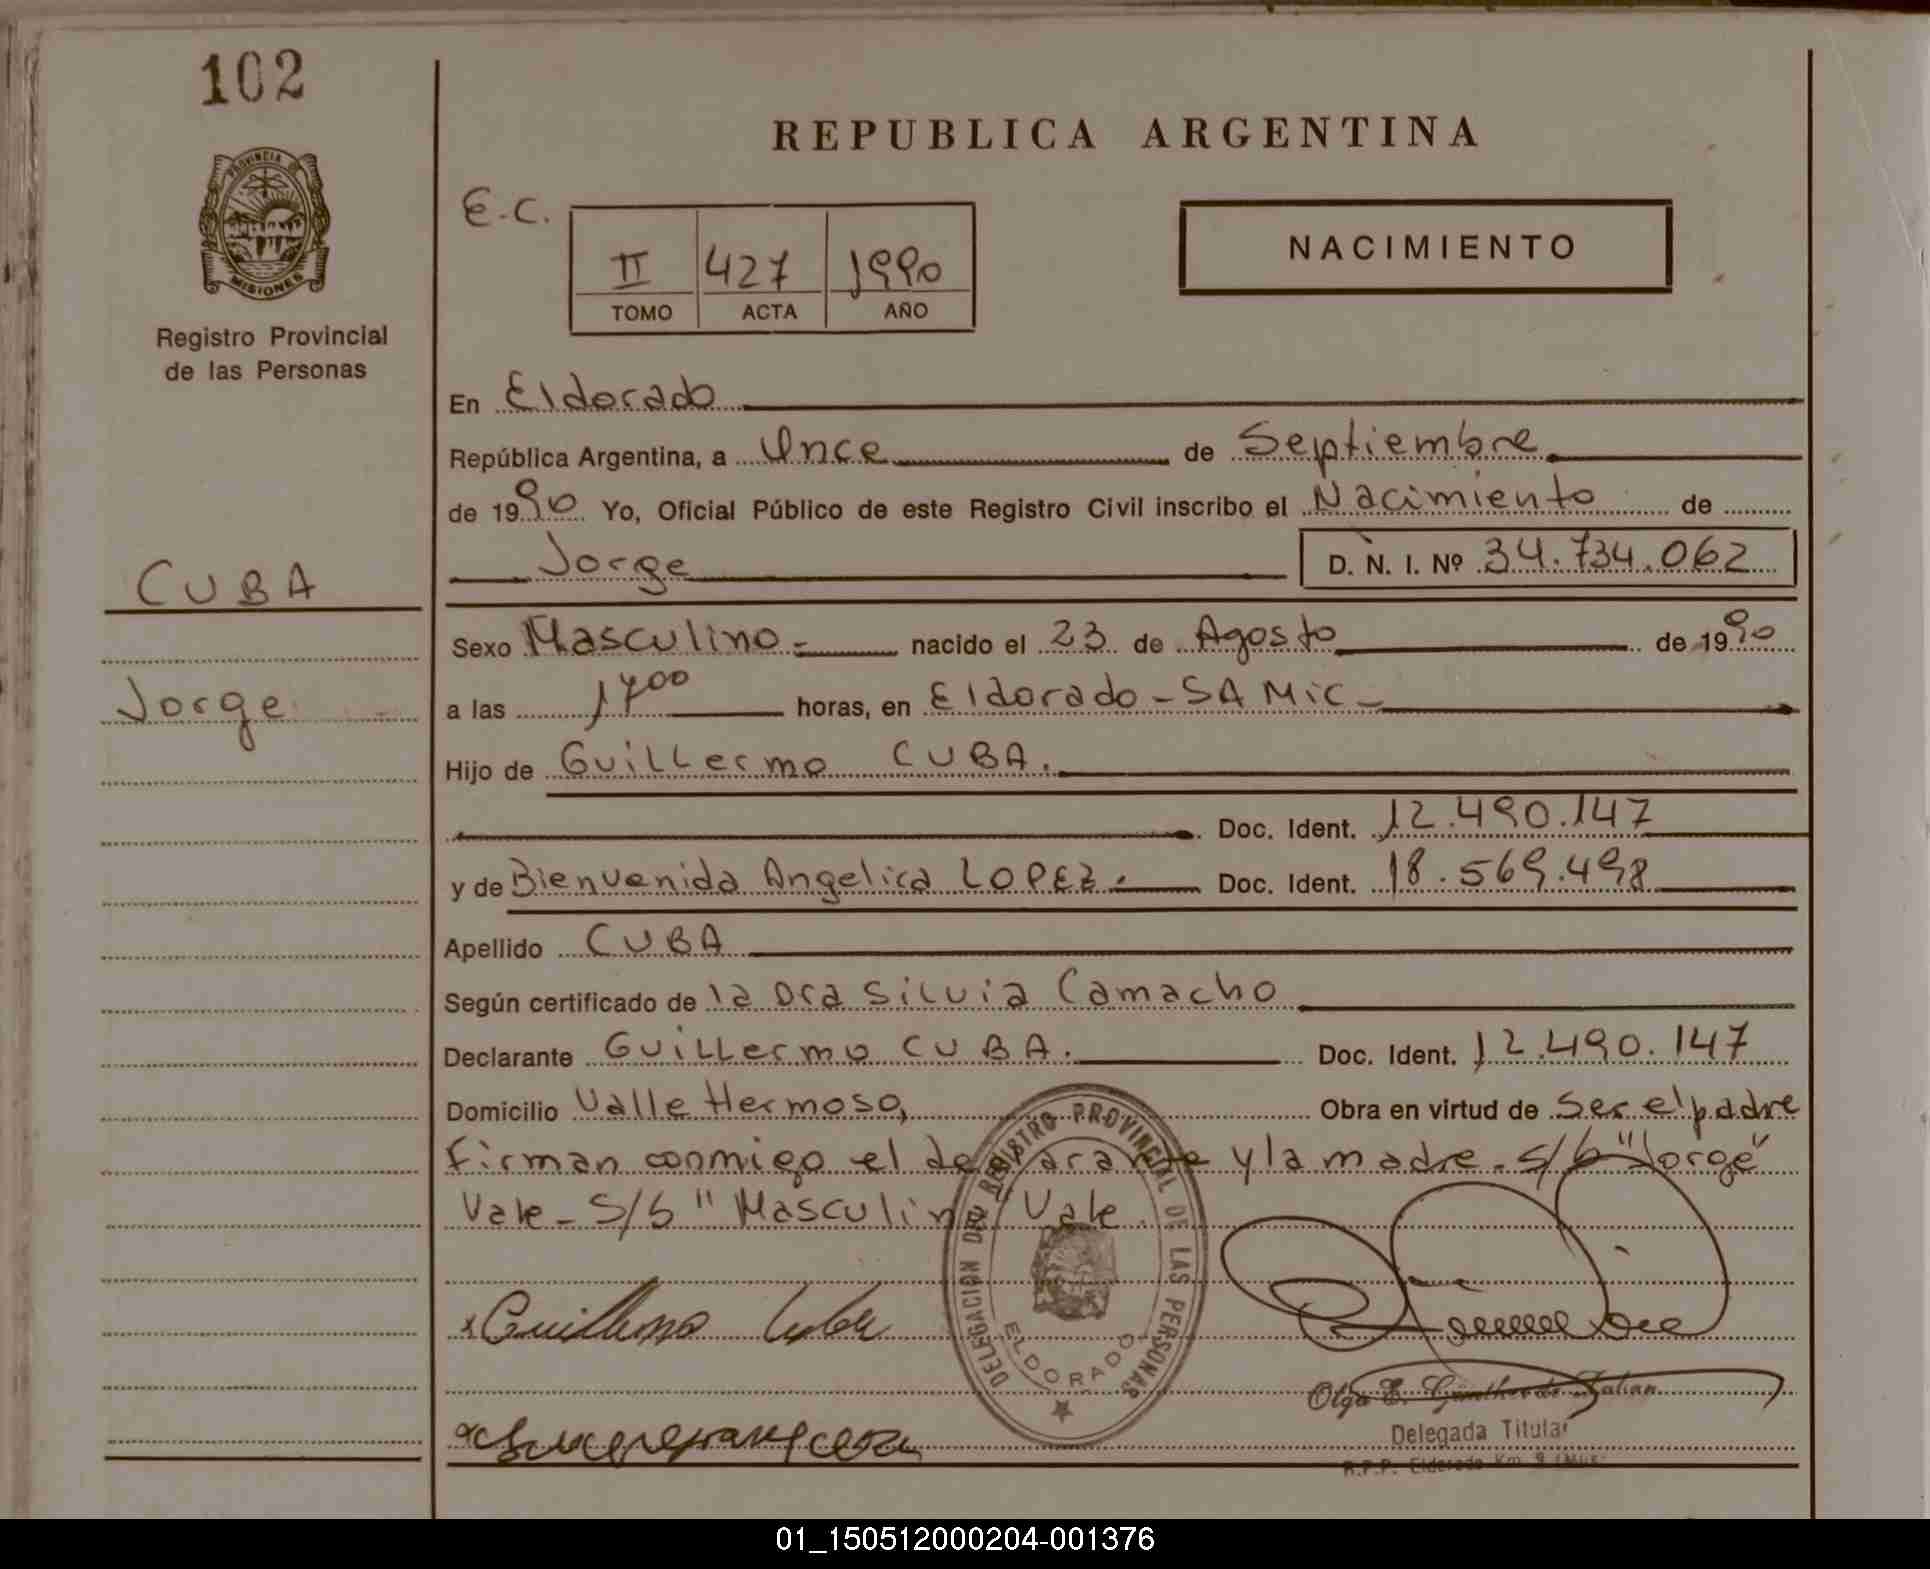 102
PROVINCIA DE
MISIONES
Registro Provincial
de las Personas
CUBA
Jorge
REPUBLICA ARGENTINA
E.C.
II 427 1990
TOMO ACTA AÑO
NACIMIENTO
En Eldorado
República Argentina, a Once de Septiembre
de 1990 Yo, Oficial Público de este Registro Civil inscribo el Nacimiento de
Jorge D. N. I. Nº 34.734.062
Sexo Masculino.- nacido el 23 de Agosto de 1990
a las 1700 horas, en Eldorado - SAMIC -
Hijo de Guillermo CUBA.
Doc. Ident. 12.490.147
y de Bienvenida Angelica LOPEZ.- Doc. Ident. 18.569.498
Apellido CUBA
Según certificado de la Dra Silvia Camacho
Declarante Guillermo CUBA. Doc. Ident. 12.490.147
Domicilio Valle Hermoso, Obra en virtud de ser el padre
Firman conmigo el declarante y la madre. S/b "Jorge"
Vale - S/b "Masculino" Vale.
DELEGACION DEL REGISTRO PROVINCIAL DE LAS PERSONAS
ELDORADO
x Guillermo Cuba
Olga E.
Delegada Titular
R.P.P. Eldorado Km 9
01_150512000204-001376